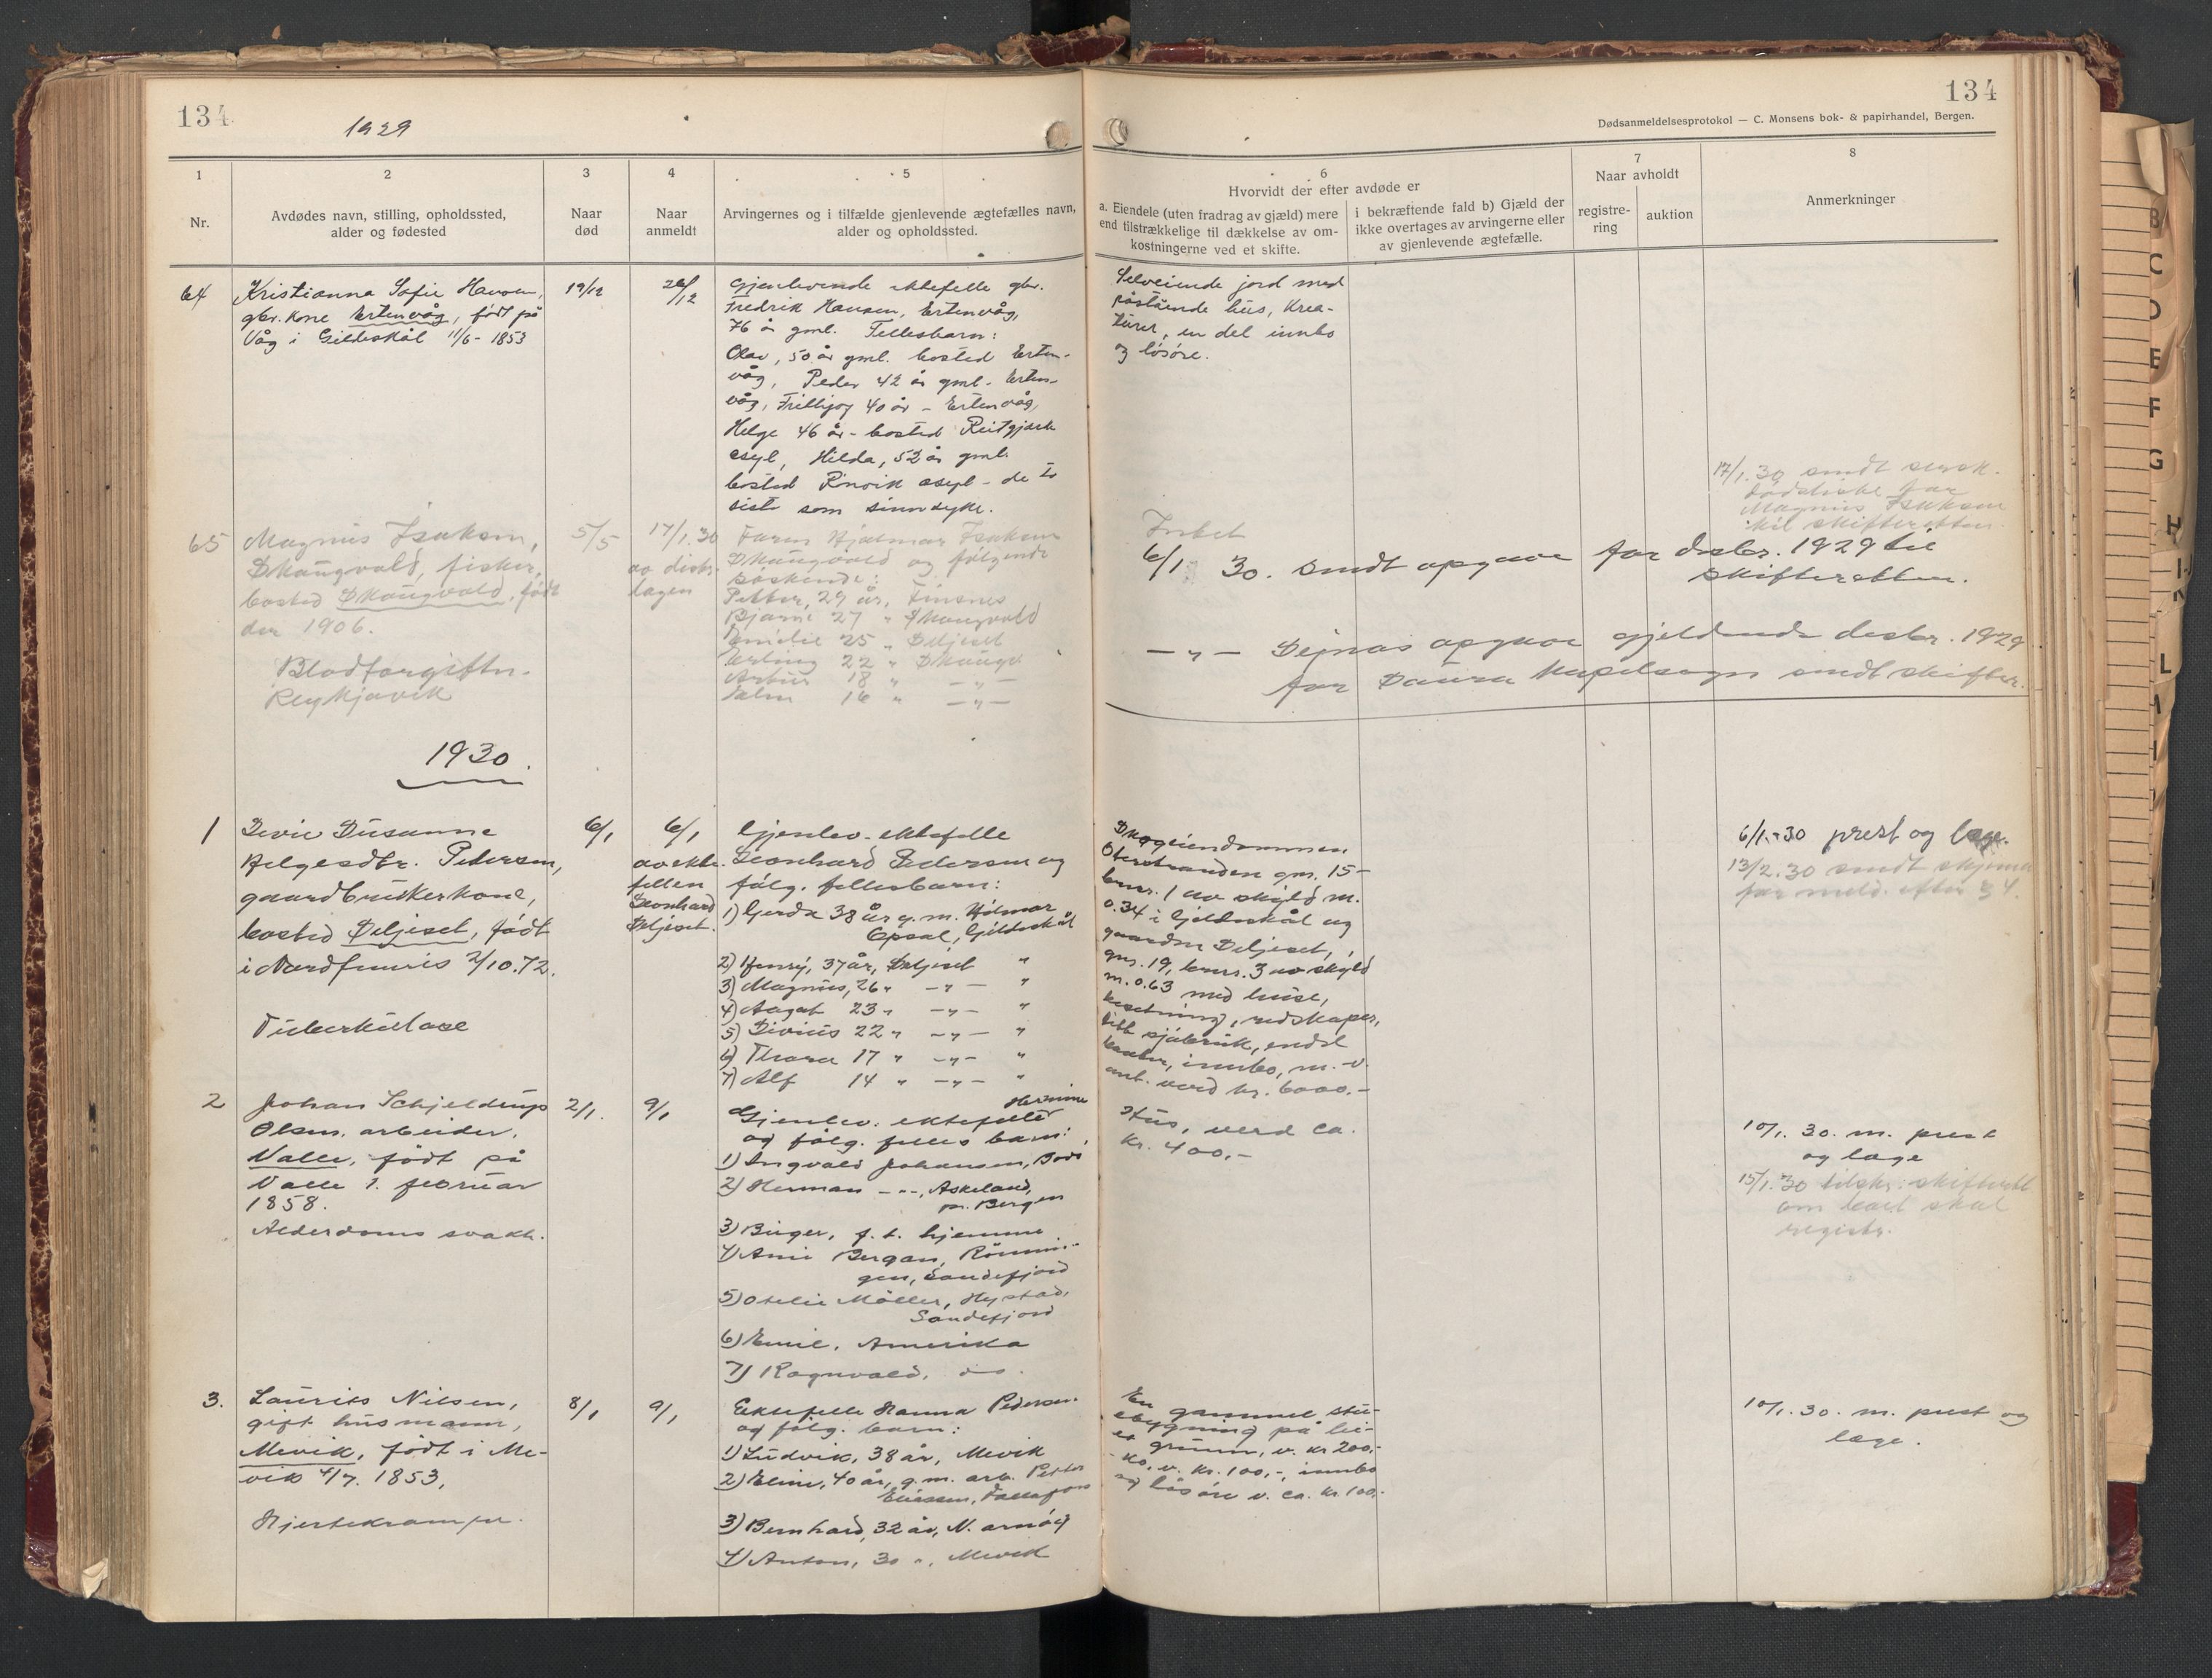 134
1929
1
2
3
4
5
Nr.
Avdødes navn, stilling, opholdssted,
alder og fødested
Naar
død
Naar
anmeldt
Arvingernes og i tilfælde gjenlevende ægtefælles navn,
alder og opholdssted.
64
Kristianna Sofie Hansen,
gbr. kone Ertenvåg, født på
Våg i Gildeskål 11/6 - 1853
19/12
26/12
Gjenlevende ektefelle gbr.
Fredrik Hansen, Ertenvåg,
76 år gml. Fellesbarn:
Olav, 50 år gml. bosted Erten-
våg, Peder 42 år gml. Erten-
våg, Frithjof 40 år - Ertenvåg,
Helge 46 år - bosted Reitgjerde
asyl, Hilda, 52 år gml.
bosted Rinvik asyl - de to
siste som sinnsyke.
65
Magnus Isaksen,
Skaugvold, fisker,
bosted Skaugvold, født
der 1906.
Blodforgiftn.
Reykjavik
5/5
17/1.30
av distr.
lægen
Faren Hjalmar Isaksen
Skaugvold og følgende
søskende:
Petter, 29 år, Finsnes
Bjarne 27 " Skaugvold
Emilie 25 " Seljeset
Erling 22 " Skaugv.
Artur 18 " - " -
16 " - " -
1930.
1
Sevie Susanne
Helgesdtr. Pedersen,
gaardbrukerkone,
bosted Seljeset, født
i Nordfuuris 2/10.72.
Tuberkulose
6/1
6/1
av ekte-
fellen
Leonhard
Seljeset.
Gjenlev. ektefelle
Leonhard Pedersen og
følg. fellesbarn:
1) Gerda 38 år g. m. Hilmar
Opsal, Gildeskål
2) Henry, 37 år, Seljeset "
3) Magnus, 26 " - " - "
4) Aagot 23 " - " - "
5) Sivius 22 " - " - "
6) Thora 17 " - " - "
7) Alf 14 " - " - "
2
Johan Schjeldrup
Olsen. arbeider.
Valle, født på
Valle 7. februar
1858.
Alderdoms svakh.
2/1.
9/1
Hermine
Gjenlev. ektefelle
og følg. felles barn:
1) Ingvald Johansen, Bodø
2) Herman - " -, Askeland,
pr. Bergen
3) Birger, f. t. hjemme
4) Anni Bergan, Rønnin-
gen, Sandefjord
5) Otelie Møller, Hystad,
Sandefjord
6) Emil, Amerika
7) Ragnvald, do.
3.
Laurits Nilsen,
gift husmann,
Mevik, født i Me-
vik 4/7. 1853,
Hjertekramper.
8/1
9/1
Ektefelle Hanna Pedersen.
og følg. barn:
1) Ludvik, 38 år, Mevik
2) Eline, 40 år, g. m. arb. Petter
Eliassen,
3) Bernhard, 32 år, N. arnøy
4) Anton, 30 ", Mevik
134
Dødsanmeldelsesprotokol — C. Monsens bok- & papirhandel, Bergen.
6
Hvorvidt der efter avdøde er
a. Eiendele (uten fradrag av gjæld) mere
end tilstrækkelige til dækkelse av om-
kostningerne ved et skifte.
i bekræftende fald b) Gjæld der
ikke overtages av arvingerne eller
av gjenlevende ægtefælle.
7
Naar avholdt
registre-
ring
auktion
8
Anmerkninger
Selveiende jord med
påstående hus, krea-
turer, en del innbo
og løsøre.
17/1.30 sendt
Magnus Isaksen
til skifteretten.
Intet
6/1 30. sendt opgave for desbr. 1929 til
skifteretten.
- " - Steinas opgave gjeldende desbr. 1929
for Saura kapelsogn sendt skifter.
Skogeiendommen
Oterstranden gnr. 15-
bnr. 1 av skyld m.
0.34 i Gildeskål og
gaarden Seljeset,
gnr. 19, bnr. 3 av skyld
m. 0.63 med huse,
besetning, redskaper,
litt sjøbruk, endel
innbo, m. v.
ant. verd kr. 6000.-
6/1.-30 prest og læge.
13/2.30 sendt skjema
for meld. efter § 4.
Hus, verd ca.
kr. 400,-
10/1. 30. m. prest
og læge
15/1.30 tilskr. skifterett
om boet skal
registr.
En gammel stu-
ebygning på lei-
et grunn, v. kr 200.-
ko, v. kr. 100,-, innbo
og løsøre v. ca. kr. 100.-
10/1. 30. m. prest og
læge.
B
C
D
E
F
G
H
I
K
L